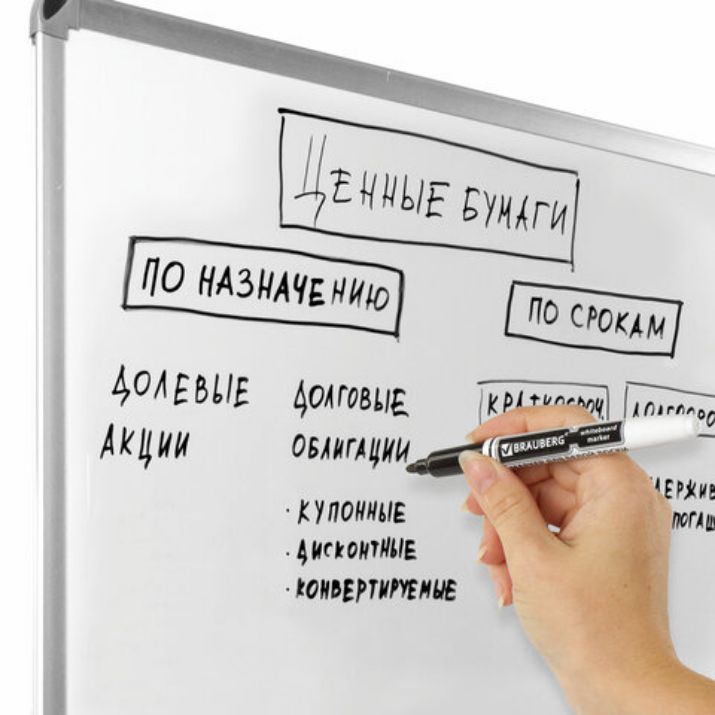 ЦЕННЫЕ БУМАГИ
ПО НАЗНАЧЕНИЮ
ПО СРОКАМ
ДОЛЕВЫЕ
АКЦИИ
ДОЛГОВЫЕ
ОБЛИГАЦИИ
· КУПОННЫЕ
· ДИСКОНТНЫЕ
· КОНВЕРТИРУЕМЫЕ
КРАТКОСРОЧ
BRAUBERG
whiteboard
marker